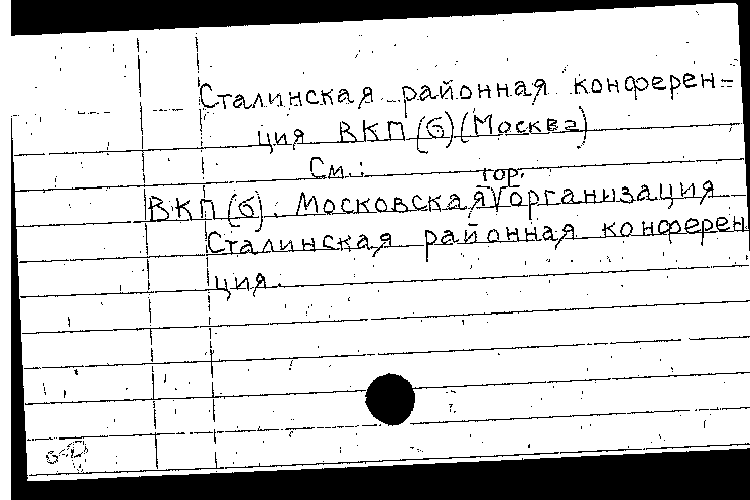 Сталинская районная конферен=
ция ВКП(б)(Москва)
См.:
гор.
ВКП(б). Московская организация
Сталинская районная конферен
ция.